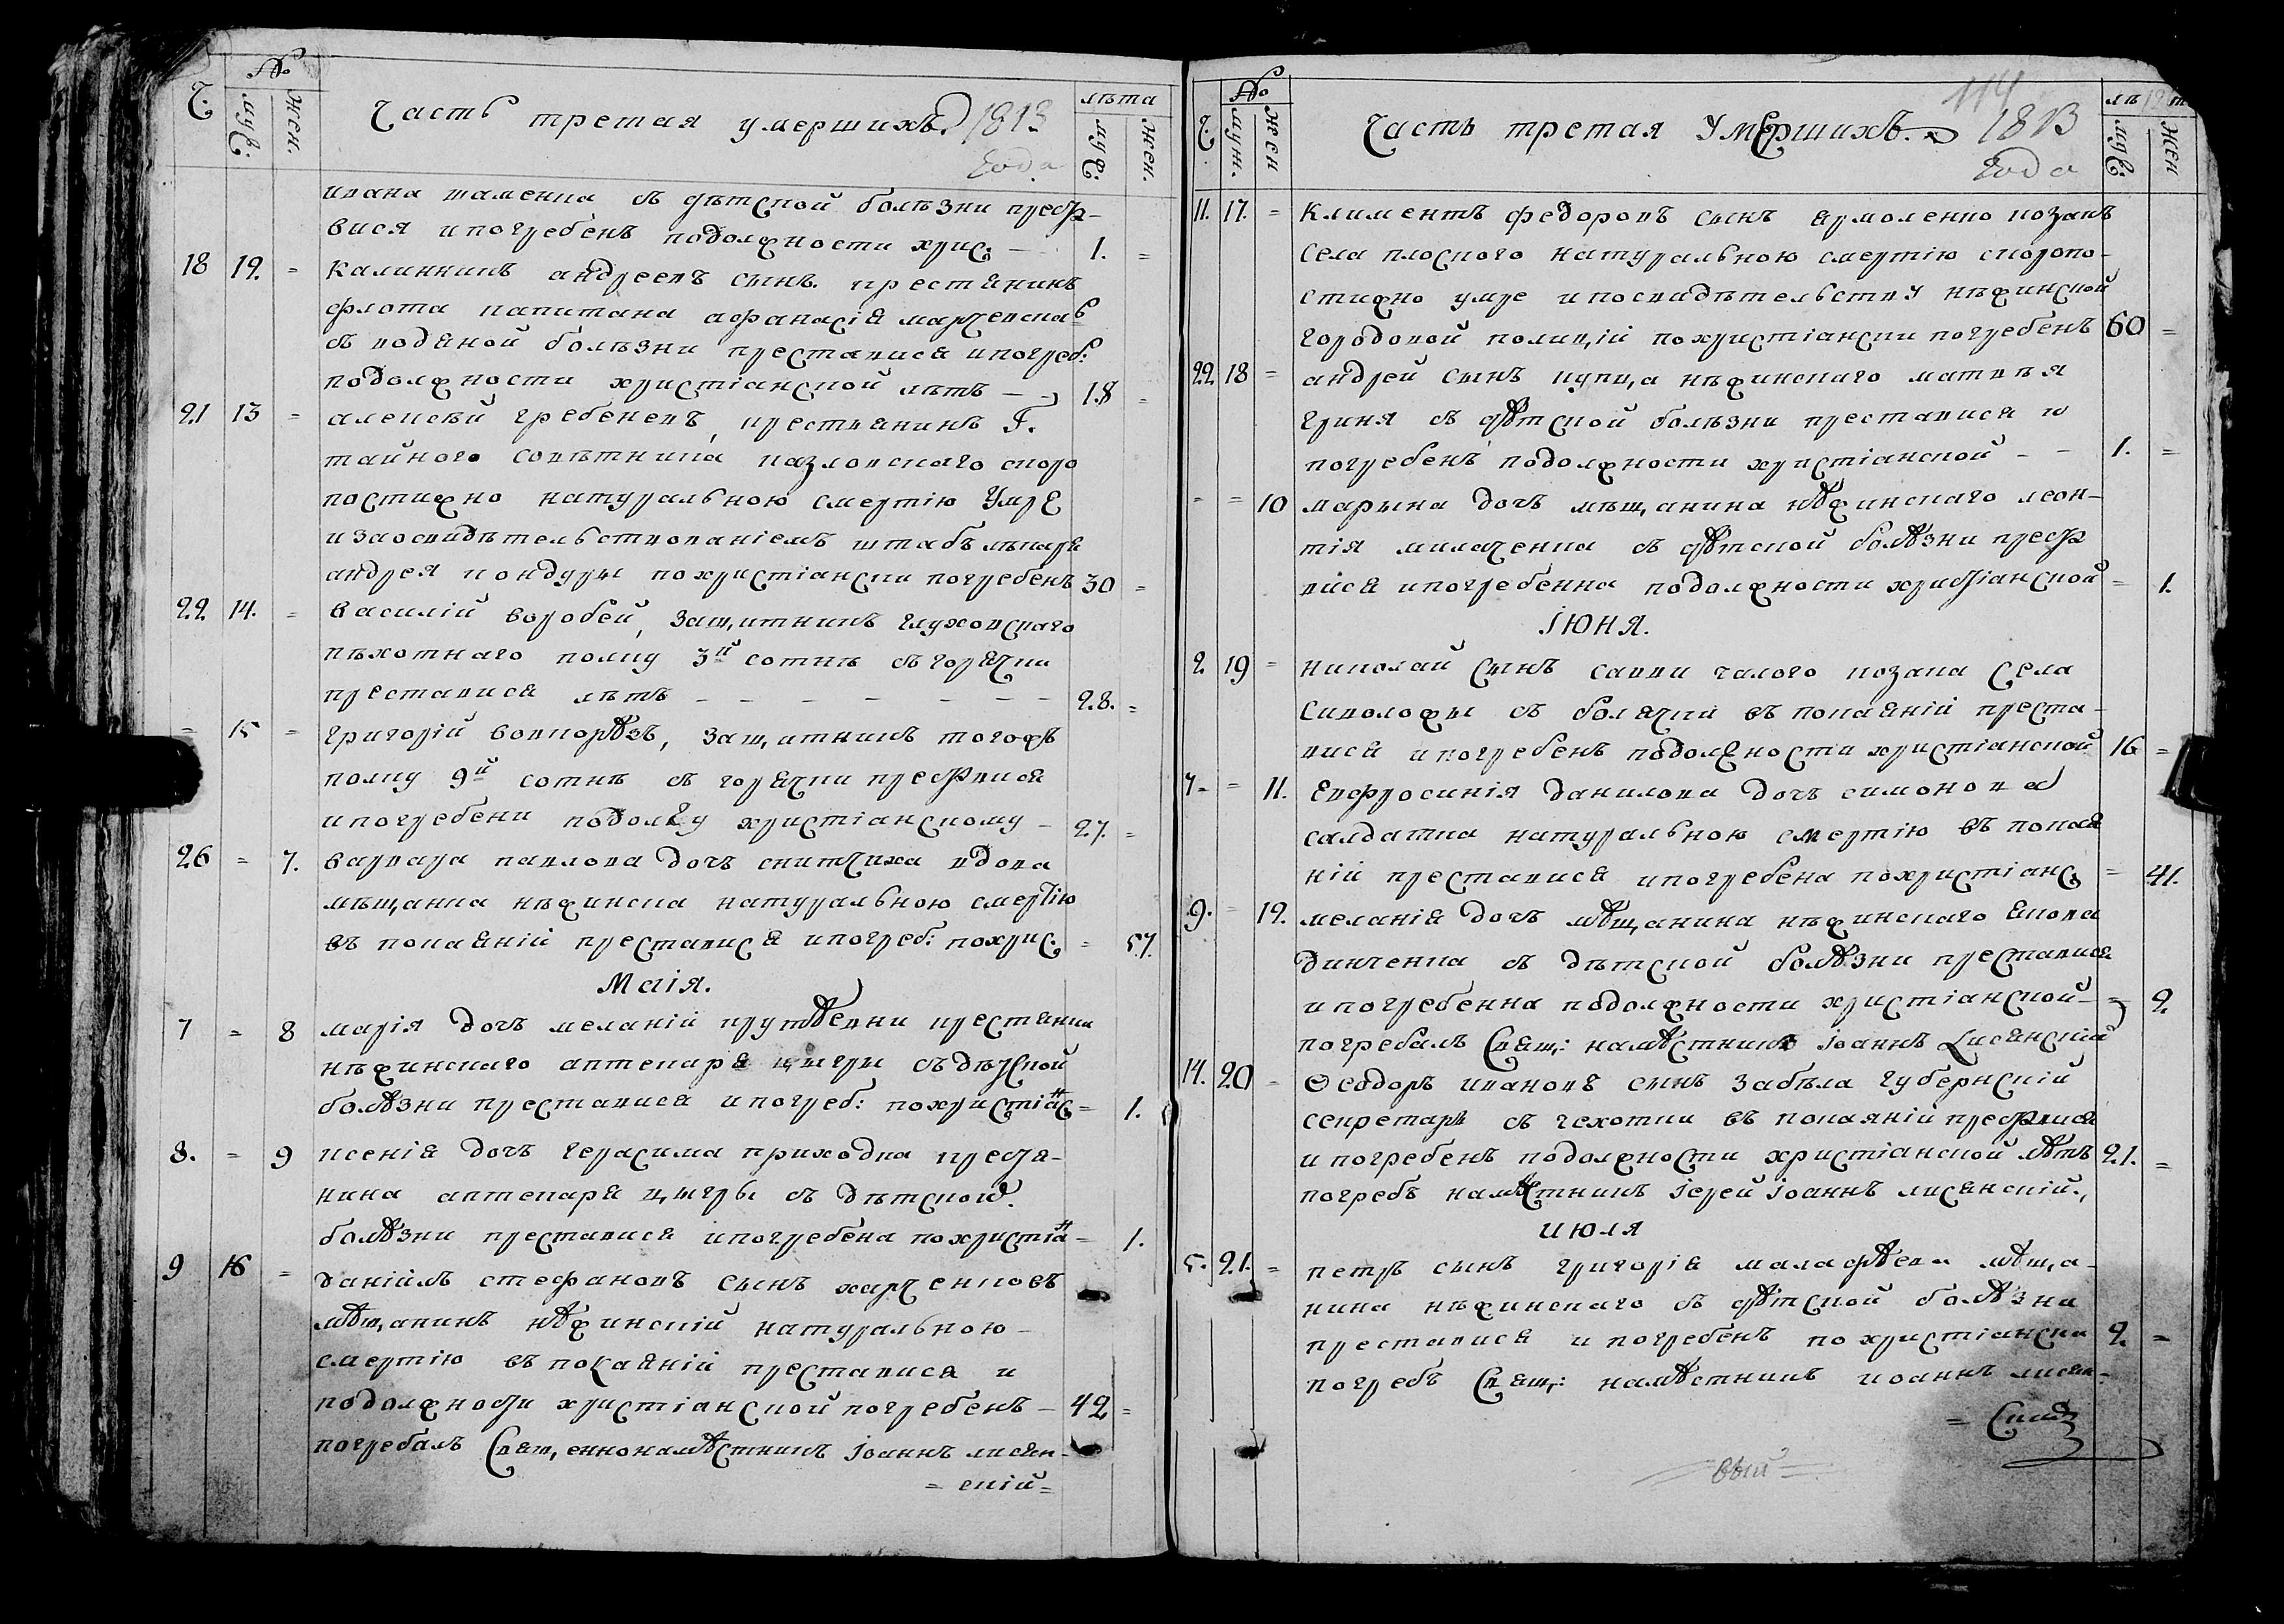 Ч. № муж: жен.
Часть третая умершихъ. 1813
года
лѣта
муж: жен.
ивана шаменка съ дѣтской болѣзни прест-
вися и погребенъ подолжности хрис: — 1. =
18 19. = Калинникъ андреевъ сынъ. крестянинъ
флота капитана афанасія марченка
съ водяной болѣзни преставися и погреб:
подолжности христіанской лѣтъ — 18 =
21 13 = алексѣй гребеневъ, крествянинъ Г.
тайного совѣтника козловскаго скоро
постижно натуральною смертію умре
и заосвидѣтельствованіемъ штабъ лѣкаря
андрея кондуры похристіански погребенъ 30 =
22 14. = василій воробей, защитникъ глуховскаго
пѣхотнаго полку 3й сотнѣ съ горячки
преставися лѣтъ — — — — — — 28. =
= 15 = григорій вовкорѣзъ, защитникъ тогожъ
полку 9й сотнѣ съ горячки преставися
и погребени подолгу христіанскому — 27. =
26 = 7. варвара павлова дочъ снитчиха вдова
мѣщанка нѣжинска натуральною смертію
въ покаяній преставися и погреб: похрис: = 57.
Маія.
7 = 8 марія дочъ меланій крутѣевни крестянки
нѣжинскаго аптекаря цыгры съ дѣтской
болѣзни преставися и погреб: похристіанс = 1.
8. = 9 ксенія дочъ герасима приходка крестя-
нина аптекаря цыгры съ дѣтской
болѣзни преставися и погребена похристіан = 1.
9 16 = даніилъ стефановъ сынъ харченковъ
мѣщанинъ нѣжинскій натуральною —
смертію въ покаяній преставися и
подолжности христіанской погребенъ — 42 =
погребалъ Священнонамѣстникъ Іоаннъ лисян-
= скій =
Ч. № муж. жен
Часть третая умершихъ. 1813
года
114
лѣта
муж: жен
11. 17. = Климентъ федоровъ сынъ ярмоленко козакъ
села плоского натуральною смертію скоропо-
стижно умре и посвидѣтельству нѣжинской
городовой полицій похристіански погребенъ 60 =
22 18 = андрей сынъ купца нѣжинскаго матвѣя
гриня съ дѣтской болѣзни преставися и
погребенъ подолжности христіанской — — 1. =
= = 10 марына дочъ мѣщанина нѣжинскаго леон-
тія милаченка съ дѣтской болѣзни прест
вися и погребенна подолжности христіанской = 1.
Іюня.
2 19 = николай сынъ савви галого козака села
сиволожы съ болячки въ покаяній преста-
вися и погребенъ подолжности христіанской 16 =
7. = 11. Евфросинія данилова дочъ симонова
салдатка натуральною смертію въ покая
ній преставися и погребена похристіанс = 41.
9. = 12. меланія дочъ мѣщанина нѣжинскаго якова
динченка съ дѣтской болѣзни преставися
и погребенна подолжности христіанской — = 2.
погребалъ Свящ: намѣстникъ Іоаннъ Лисянскій
14. 20 = Ѳеодоръ ивановъ сынъ забѣла губернскій
секретарь съ чехотки въ покаяній преставися
и погребенъ подолжности христіанской лѣтъ 21. =
погребъ намѣстникъ Іерей Іоаннъ лисянскій.
июля
5. 21. = петръ сынъ григорія малафѣева мѣща-
нина нѣжинскаго съ дѣтской болѣзни
преставися и погребенъ похристіански 2. =
погребъ Свящ: намѣстникъ иоаннъ лисян-
= скій